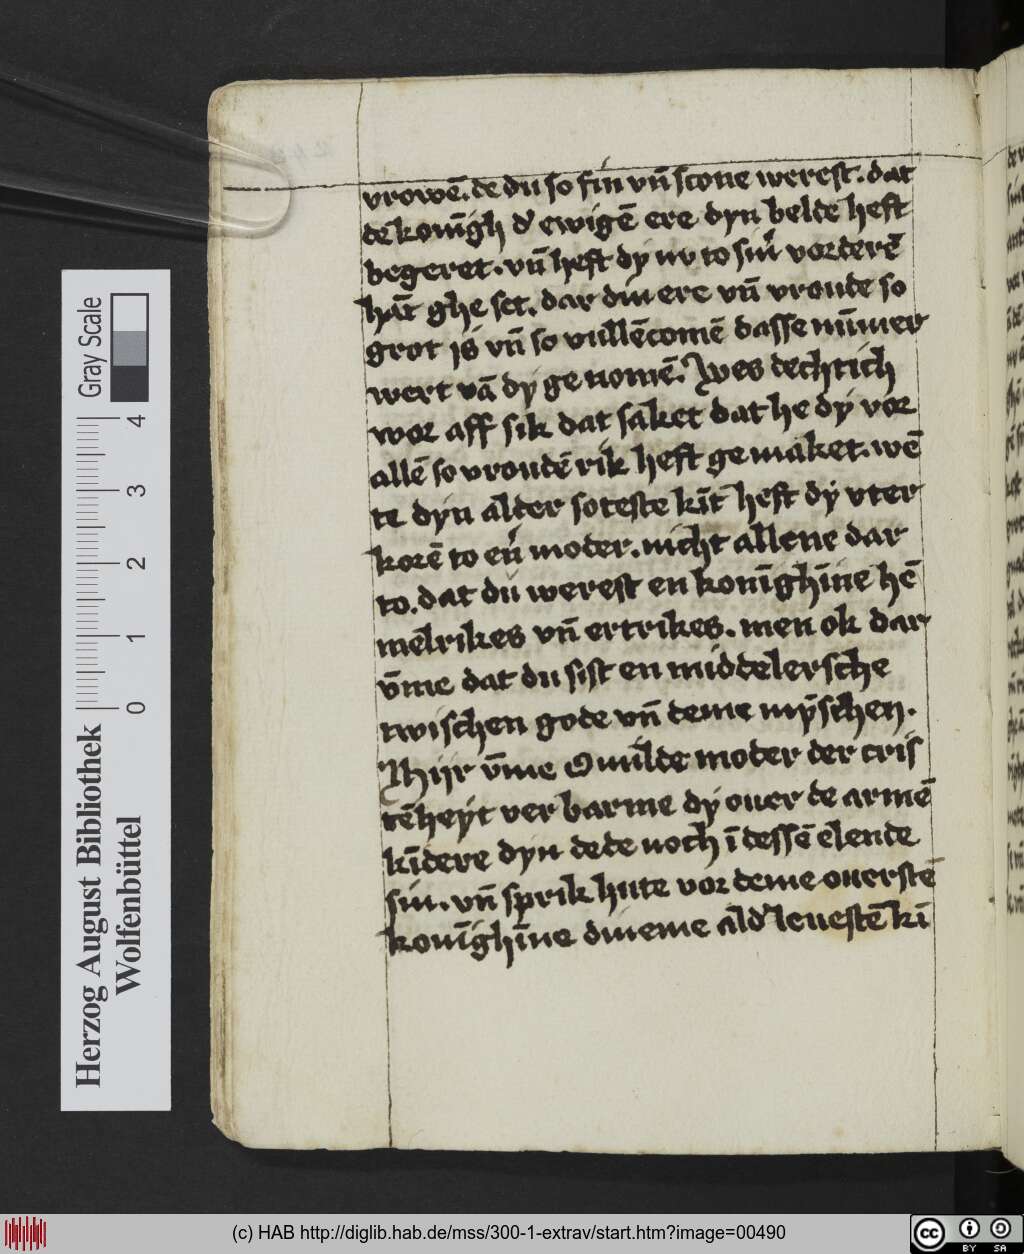 vrowē. de du so fin vn̄ scone werest. dat
de konīgh d' ewigē ere dyn belde heft
begeret. vn̄ heft dy nv to sin' vorderē
hāt ghe set. dar din ere vn̄ vroude so
grot is vn̄ so vullēcomē dasse nūmer
wert vā dy ge nomē. Wes dechtich
wor aff sik dat saket dat he dy vor
allē so vroudē rik heft gemaket. wē
te dyn alder soteste kīt heft dy vter
korē to en' moder. nicht allene dar
to. dat du werest en konīghīne hē
mēlrikes vn̄ ertrikes. men ok dar
v̄me dat du sist en middelersche
twischen gode vn̄ deme mȳschen.
Hijr v̄me O milde moder der cris
tēheyt ver barme dy ouer de armē
kīdere dyn dede noch ī dessē elende
sin. vn̄ sprik hute vor deme ouerstē
konīghīne dineme ald' leuestē kī
Herzog August Bibliothek
Wolfenbüttel
0 1 2 3 4
Gray Scale
(c) HAB http://diglib.hab.de/mss/300-1-extrav/start.htm?image=00490
cc BY SA